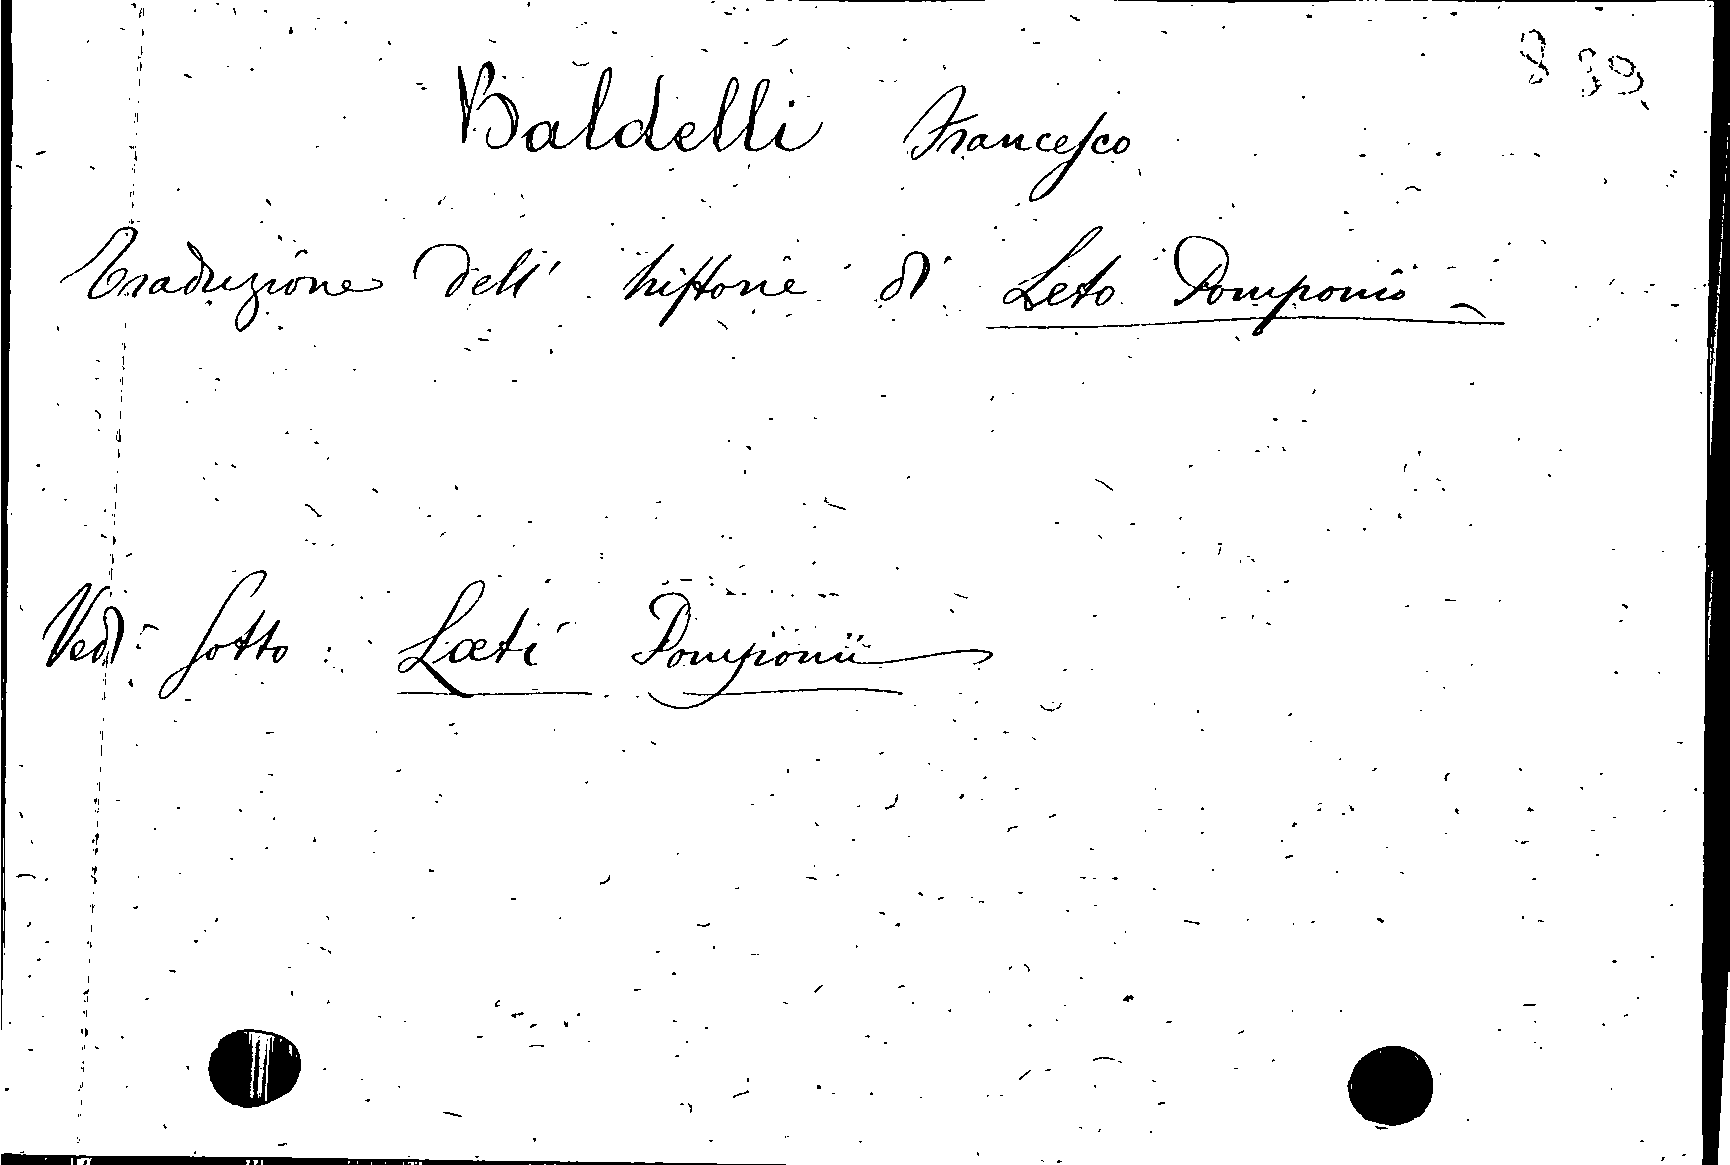 8 39.
Baldelli Francesco
Traduzione dell' historie di Leto Pomponio
Vedi sotto: Læti Pomponii